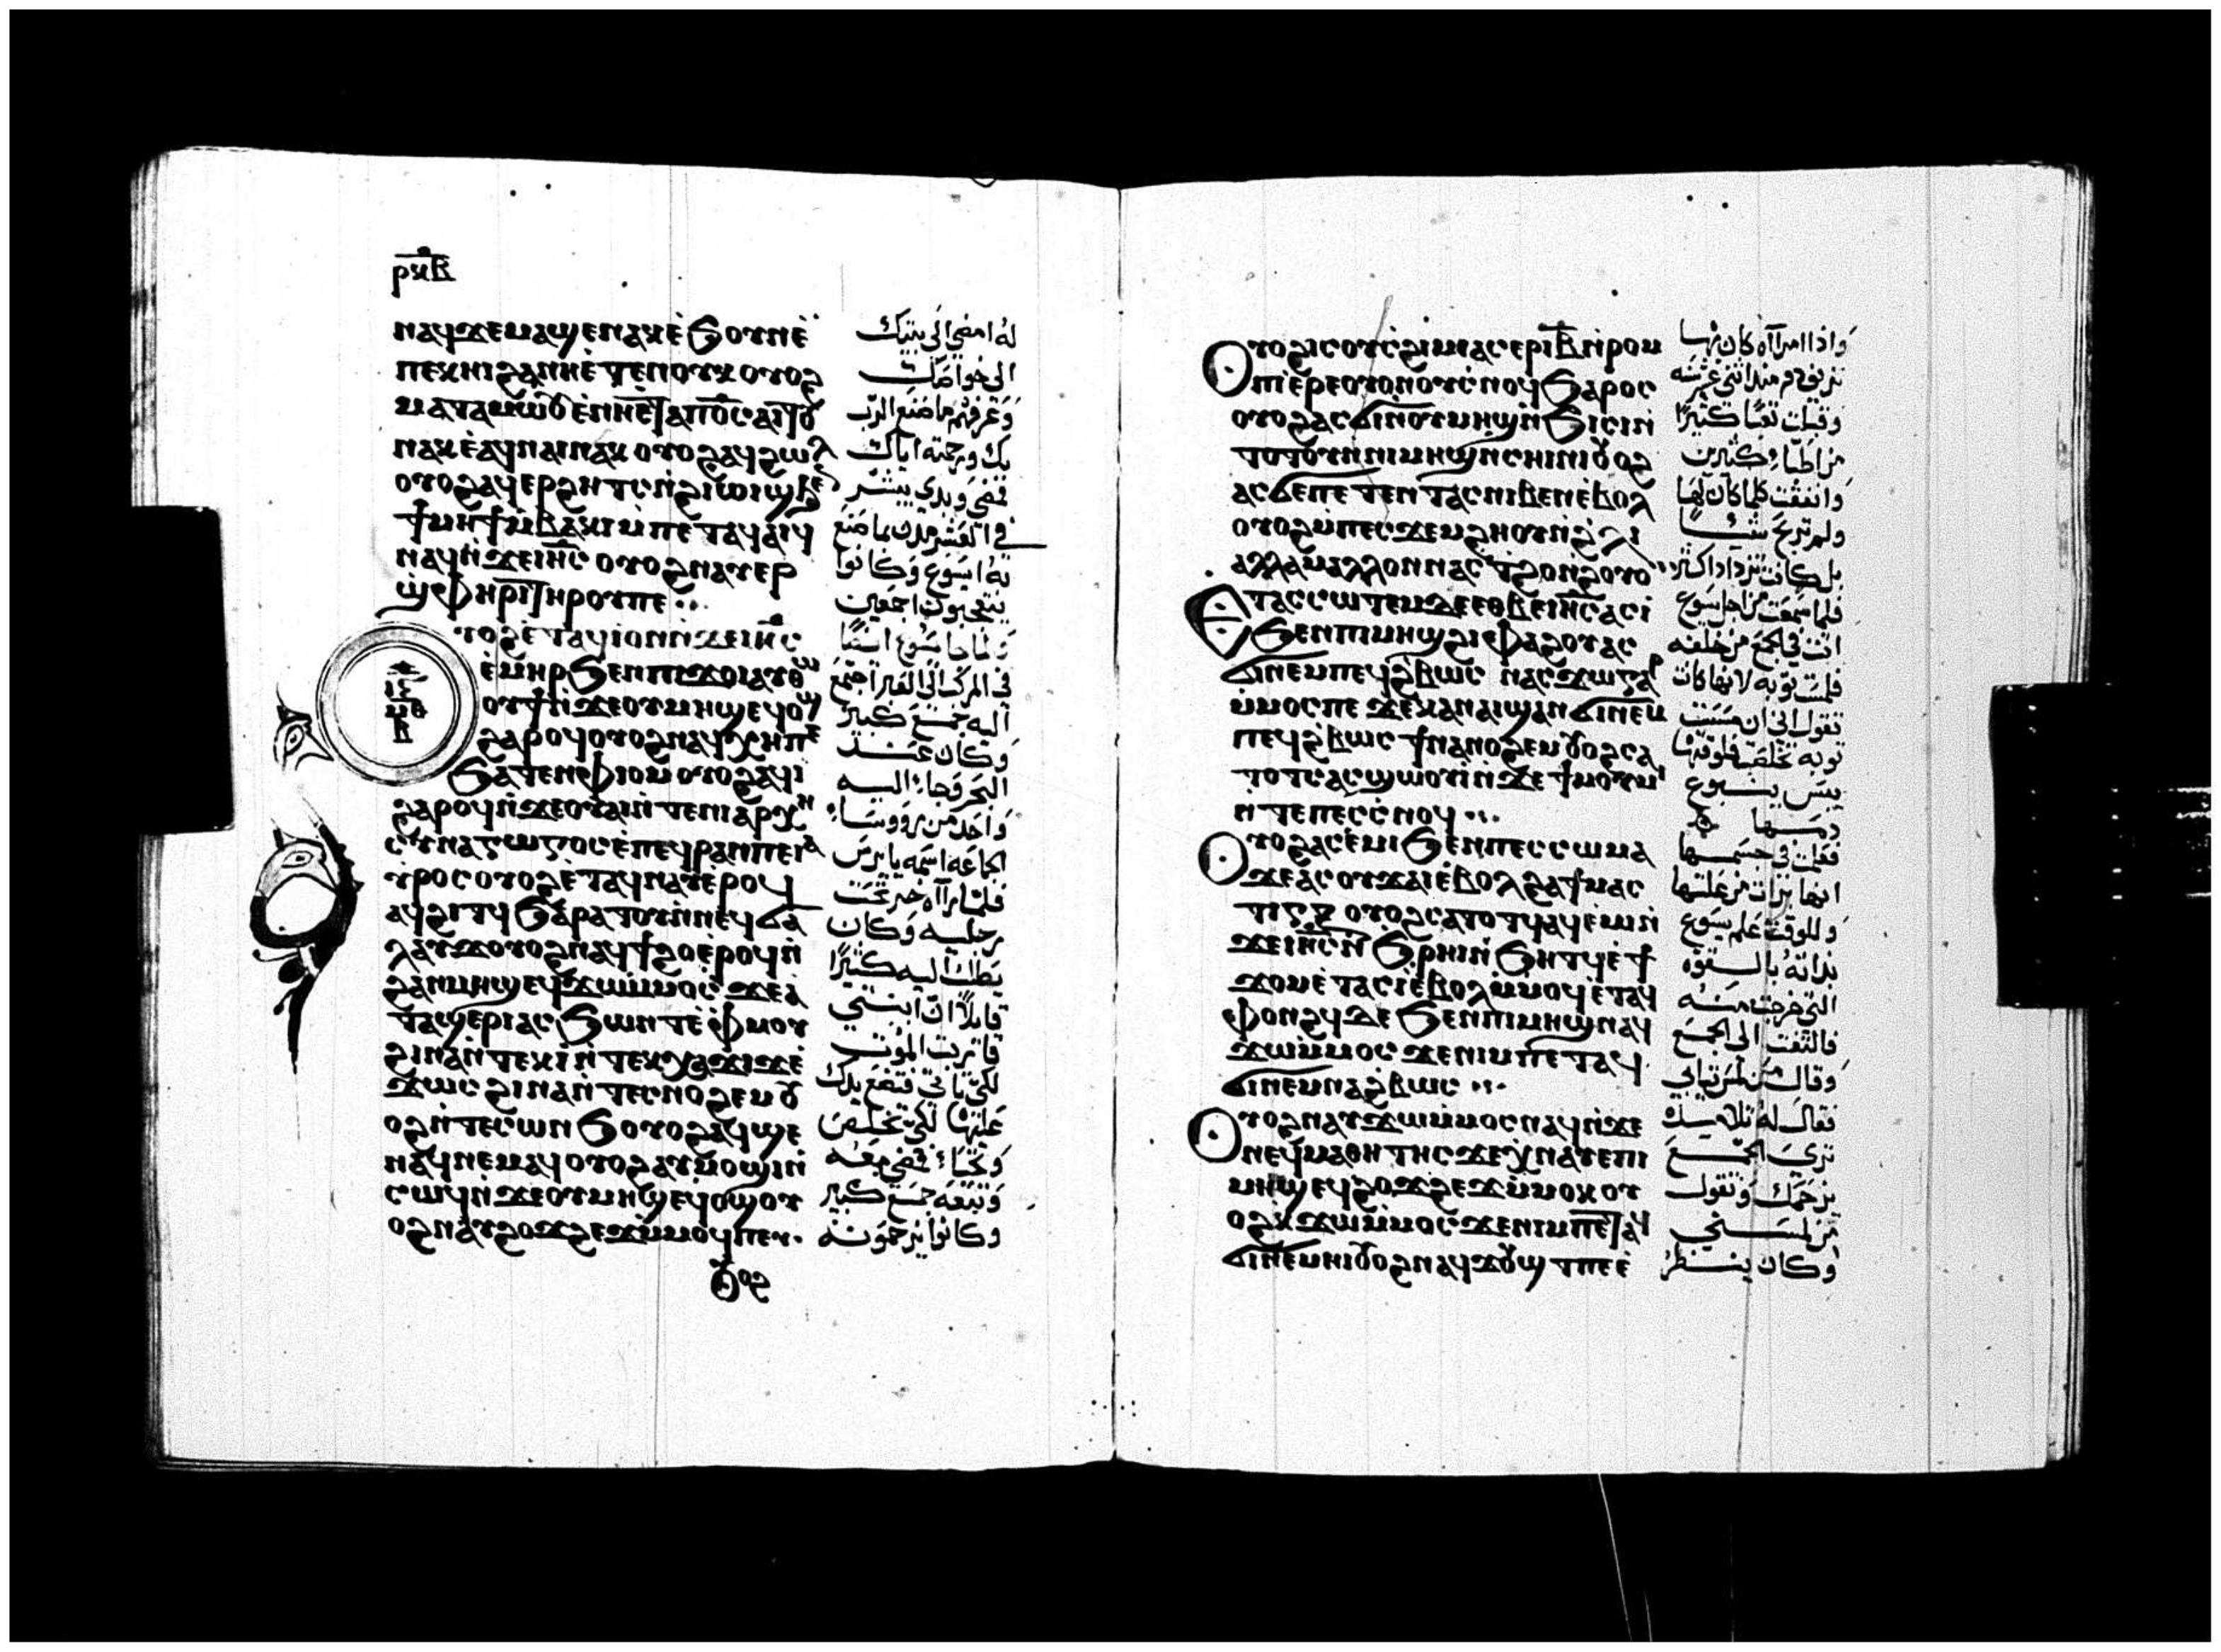 ⲣⲕⲃ
ⲛⲁϥϫⲉⲙⲁϣⲉⲛⲁⲕⲉ̀ϧⲟⲩⲛⲉ̀
ⲡⲉⲕⲏⲓϩⲁⲛⲏⲉ̀ⲧⲉⲛⲟⲩⲕⲟⲩⲟϩ
ⲙⲁⲧⲁⲙⲱⲟⲩⲉ̀ⲛⲏⲉ̅ⲧⲁⲡⲟ̅ⲥ̅ⲁⲓⲧⲟⲩ
ⲛⲁⲕⲉ̀ⲁϥⲛⲁⲓⲛⲁⲕⲟⲩⲟϩⲁϥϩⲱⲗ
ⲟⲩⲟϩⲁϥⲉⲣϩⲏⲧⲥⲛ̀ϩⲓⲱⲓϣϧⲉ
ϯⲙⲏϯⲙ̀ⲃⲁⲕⲓⲙ̀ⲡⲉⲧⲁϥⲁⲓϥ
ⲛⲁϥⲛ̀ϫⲉⲓⲏ̅ⲥ̅ⲟⲩⲟϩⲛⲁⲩⲉⲣ
ϣ̀ⲫⲏⲣⲓⲧⲏⲣⲟⲩⲡⲉ
ⲩⲟϩⲉ̀ⲧⲁϥⲓⲟⲛⲛ̀ϫⲉⲓⲏ̅ⲥ̅
ⲉ̀ⲙⲏⲣϧⲉⲛⲡⲓϫⲟⲓⲁⲩⲑⲱ
ⲟⲩϯⲛ̀ϫⲉⲟⲩⲙⲏϣⲉϥⲟϣ
ϩⲁⲣⲟϥⲟⲩⲟϩⲛⲁϥⲭⲏⲡⲉ
ϧⲁⲧⲉⲛⲫⲓⲟⲙⲟⲩⲟϩⲁϥⲓ
ϩⲁⲣⲟϥⲛ̀ϫⲉⲟⲩⲁⲓⲛ̀ⲧⲉⲛⲓⲁⲣⲭⲏ
ⲥⲩⲛⲁⲅⲱⲅⲟⲥⲉ̀ⲡⲉϥⲣⲁⲛⲡⲉⲓⲁ
ⲩⲣⲟⲥⲟⲩⲟϩⲉ̀ⲧⲁϥⲛⲁⲩⲉⲣⲟϥ
ⲁϥϩⲓⲧϥϧⲁⲣⲁⲧⲟⲩⲛ̀ⲛⲉϥϭⲁ
ⲗⲁⲩϫⲟⲩⲟϩⲛⲁϥϯϩⲟⲉ̀ⲣⲟϥⲛ̀
ϩⲁⲛⲙⲏϣⲉϥϫⲱⲙ̀ⲙⲟⲥϫⲉⲁ
ⲧⲁϣⲉⲣⲓⲁⲥϧⲱⲛⲧⲉ̀ⲫⲙⲟⲩ
ϩⲓⲛⲁⲛ̀ⲧⲉⲕⲓ̀ⲛ̀ⲧⲉⲕⲭⲁϫⲓϫⲉ̀
ϫⲱⲥϩⲓⲛⲁⲛ̀ⲧⲉⲥⲛⲟϩⲉⲙⲟⲩ
ⲟϩⲛ̀ⲧⲉⲥⲱⲛϧⲟⲩⲟϩⲁϥϣⲉ
ⲛⲁϥⲛⲉⲙⲁϥⲟⲩⲟϩⲁⲩⲙⲟϣⲓⲛ̀
ⲥⲱϥⲛ̀ϫⲉⲟⲩⲙⲏϣⲉϥⲟϣⲟⲩ
ⲟϩⲛⲁⲩϩⲟϫϩⲉϫⲙ̀ⲙⲟϥⲡⲉ
ⲟⲩⲟϩ
له امضي الى بيتك
الى خواصك
وعرفهم ما صنع الرب
بك ورحمته اياك
فمضى وبدى يبشر
في العشر مدن بما صنع
به ايسوع وكانوا
يتعجبون اجمعين
ولما جا يسوع ايضا
في المركب الى العبر اجتمع
اليه جمع كبير
وكان عند
البحر فجا اليه
واحد من رووسا
الجماعه اسمه يايرس
فلما رآه خر تحت
رجليه وكان
يطلب اليه كثيرا
قايلا ان ابنتي
قاربت الموت
لكي تاتي فتضع يدك
عليها لكي تخلص
وتحيا فمضى معه
وتبعه جمع كبير
وكانوا يزحمونه
ⲟⲩⲟϩⲓⲥⲟⲩⲥϩⲓⲙⲓⲁⲥⲉⲣⲓ̅ⲃ̅ⲛ̀ⲣⲟⲙ
ⲡⲓⲉ̀ⲣⲉⲟⲩⲟⲛⲟⲩⲥⲛⲟϥϧⲁⲣⲟⲥ
ⲟⲩⲟϩⲁⲥϭⲓⲛ̀ⲟⲩⲙⲏϣⲛ̀ϧⲓⲥⲓⲛ̀
ⲧⲟⲧⲟⲩⲛⲛⲓⲙⲏϣⲛⲥⲏⲓⲛⲓⲟⲩⲟϩ
ⲁⲥϭⲉⲡⲉⲧⲉⲛⲧⲁⲥⲛⲓⲃⲉⲛⲉ̀ⲃⲟⲗ
ⲟⲩⲟϩⲙ̀ⲡⲉⲥϫⲉⲙϩⲏⲟⲩⲛ̀ϩ̀ⲗⲓ
ⲁⲗⲗⲁⲙⲁⲗⲗⲟⲛⲛⲁⲥϯϩⲟⲛϩⲟⲩⲟ
ⲉⲧⲁⲥⲥⲱⲧⲉⲙⲇⲉⲉⲑⲃⲉⲓⲏ̅ⲥ̅ⲁⲥⲓ
ϧⲉⲛⲡⲓⲙⲏϣϩⲓⲫⲁϩⲟⲩⲁⲥ
ϭⲓⲛⲉⲙⲡⲉϥϩ̀ⲃⲱⲥ ⲛⲁⲥϫⲱⲅⲁⲣ
ⲙ̀ⲙⲟⲥⲡⲉϫⲉⲕⲁⲛⲁⲓϣⲁⲛϭⲓⲛⲉⲙ
ⲡⲉϥϩ̀ⲃⲱⲥϯⲛⲁⲛⲟϩⲉⲙⲟⲩⲟϩⲥⲁ
ⲧⲟⲧⲥⲁⲥϣⲱⲟⲩⲓ̀ⲛ̀ϫⲉϯⲙⲟⲩⲙⲓ
ⲛ̀ⲧⲉⲡⲉⲥⲥⲛⲟϥ
ⲟⲩⲟϩⲁⲥⲉ̀ⲙⲓϧⲉⲛⲡⲉⲥⲥⲱⲙⲁ
ϫⲉⲁⲥⲟⲩϫⲁⲓⲉ̀ⲃⲟⲗϩⲁϯⲙⲁⲥ
ⲧⲓⲅⲝ ⲟⲩⲟϩⲥⲁⲧⲟⲧϥⲁϥⲉ̀ⲙⲓⲛ̀
ϫⲉⲓⲏ̅ⲥ̅ⲛ̀ϧ̀ⲣⲏⲓⲛ̀ϧⲏⲧϥⲉ̀ϯ
ϫⲟⲙⲉ̀ⲧⲁⲥⲓⲉ̀ⲃⲟⲗⲙ̀ⲙⲟϥⲉ̀ⲧⲁϥ
ⲫⲟⲛϩϥⲇⲉϧⲉⲛⲡⲓⲙⲏϣⲛⲁϥ
ϫⲱⲙ̀ⲙⲟⲥϫⲉⲛⲓⲙⲡⲉⲧⲁϥ
ϭⲓⲛⲉⲙⲛⲁϩ̀ⲃⲱⲥ
ⲟⲩⲟϩⲛⲁⲩϫⲱⲙ̀ⲙⲟⲥⲛⲁϥⲛ̀ϫⲉ
ⲛⲉϥⲙⲁⲑⲏⲧⲏⲥϫⲉⲭ̀ⲛⲁⲩⲉⲡⲓ
ⲙⲏϣⲉϥϩⲟϫϩⲉϫⲙ̀ⲙⲟⲕⲟⲩ
ⲟϩⲕ̀ϫⲱⲙ̀ⲙⲟⲥϫⲉⲛⲓⲙⲡⲉⲧⲁϥ
ϭⲓⲛⲉⲙⲏⲓⲟⲩⲟϩⲛⲁϥϫⲟⲩϣⲧⲡⲉⲉ̀
واذا امراة كان بها
نزيف دم منذ اثنتي عشر سنه
وقبلت تعبا كثيرا
من اطباء كثيرين
وانفقت كلما كان لها
ولم تربح شيا
بل كانت تزداد اكثر
فلما سمعت من اجل يسوع
اتت في الجمع من خلفه
فلمست ثوبه لانها كانت
تقول اني ان مسست
ثوبه تخلصت فلوقتها
يبس ينبوع
دمها
فعلمت في جسمها
انها برات من علتها
وللوقت علم يسوع
بذاته بالقوه
التي خرجت منه
فالتفت الى الجمع
وقال من لمس ثيابي
فقال له تلاميده
ترى الجمع
يزحمك وتقول
من لمسني
وكان ينظر